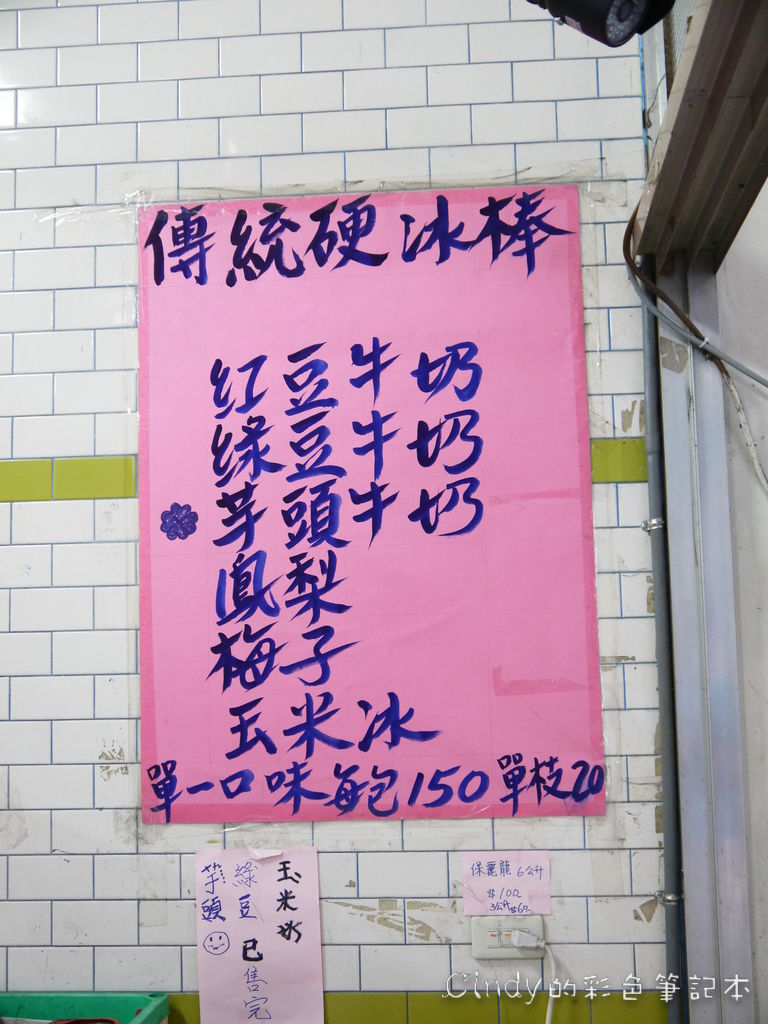 傳統硬冰棒
紅豆牛奶
綠豆牛奶
芋頭牛奶
鳳梨
梅子
玉米冰
單一口味每包150 單枝20
玉米奶
綠豆 已售完
芋頭
保麗龍 6公升
$100
3公升$60
Cindy的彩色筆記本